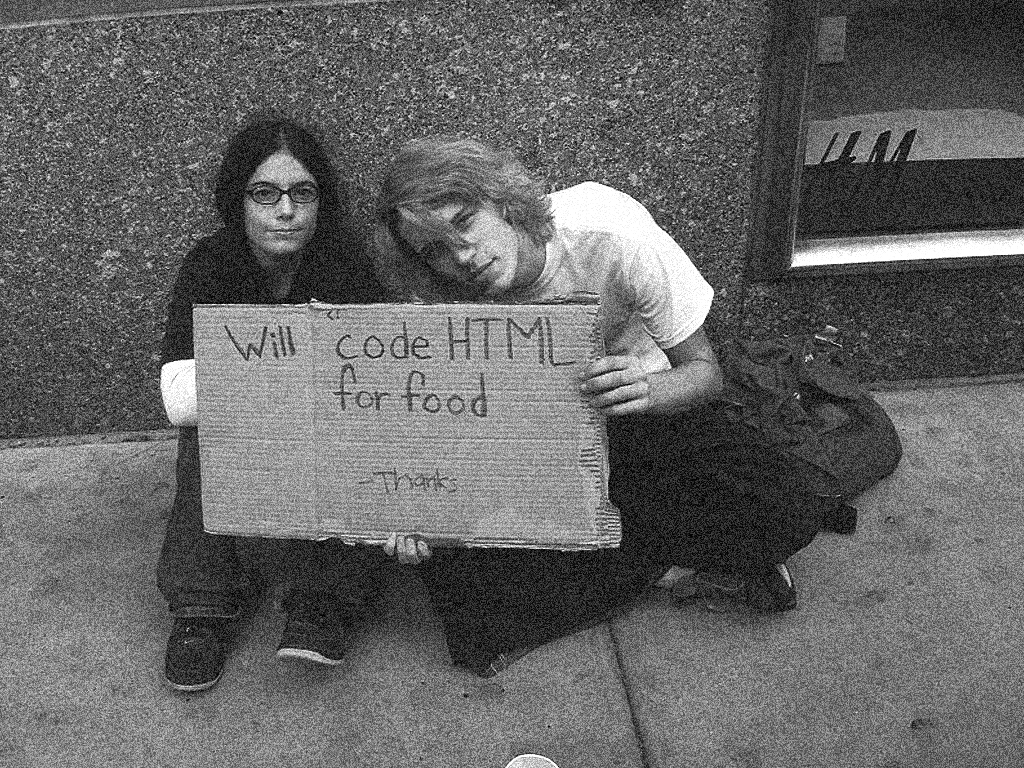 Will "code HTML
for food
-Thanks
H&M